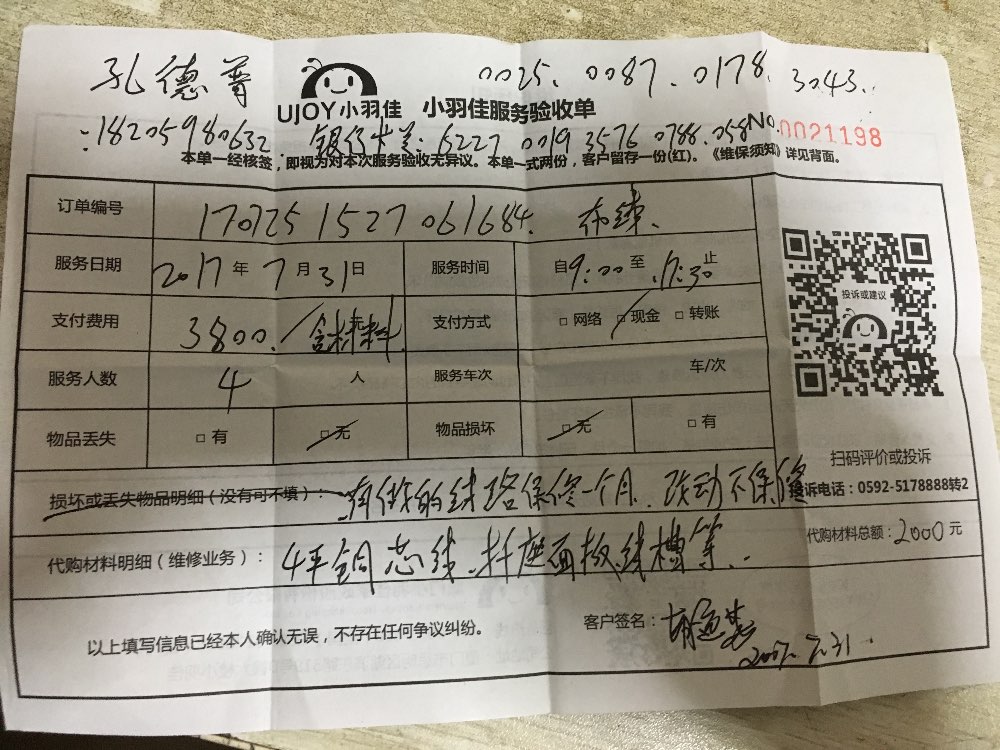 孔德尊 0025.0087.0178.3043.
UJOY小羽佳 小羽佳服务验收单
:18205980632 银行卡: 6227 0019 3576 0788 058 No.0021198
本单一经核签，即视为对本次服务验收无异议。本单一式两份，客户留存一份(红)。《维保须知》详见背面。
订单编号 170725 1527 061684. 布线.
服务日期 2017年7月31日 服务时间 自9:00至17:30止
支付费用 3800. 含材料 支付方式 □网络 □现金 □转账
投诉或建议
服务人数 4人 服务车次 车/次
物品丢失 □有 □无 物品损坏 □无 □有
扫码评价或投诉
损坏或丢失物品明细（没有可不填）： 有做的线路保修一个月.改动不保修
投诉电话：0592-5178888转2
代购材料明细（维修业务）： 4平铜芯线.插座面板线槽等.
代购材料总额：2000元
以上填写信息已经本人确认无误，不存在任何争议纠纷。
客户签名：
7.31